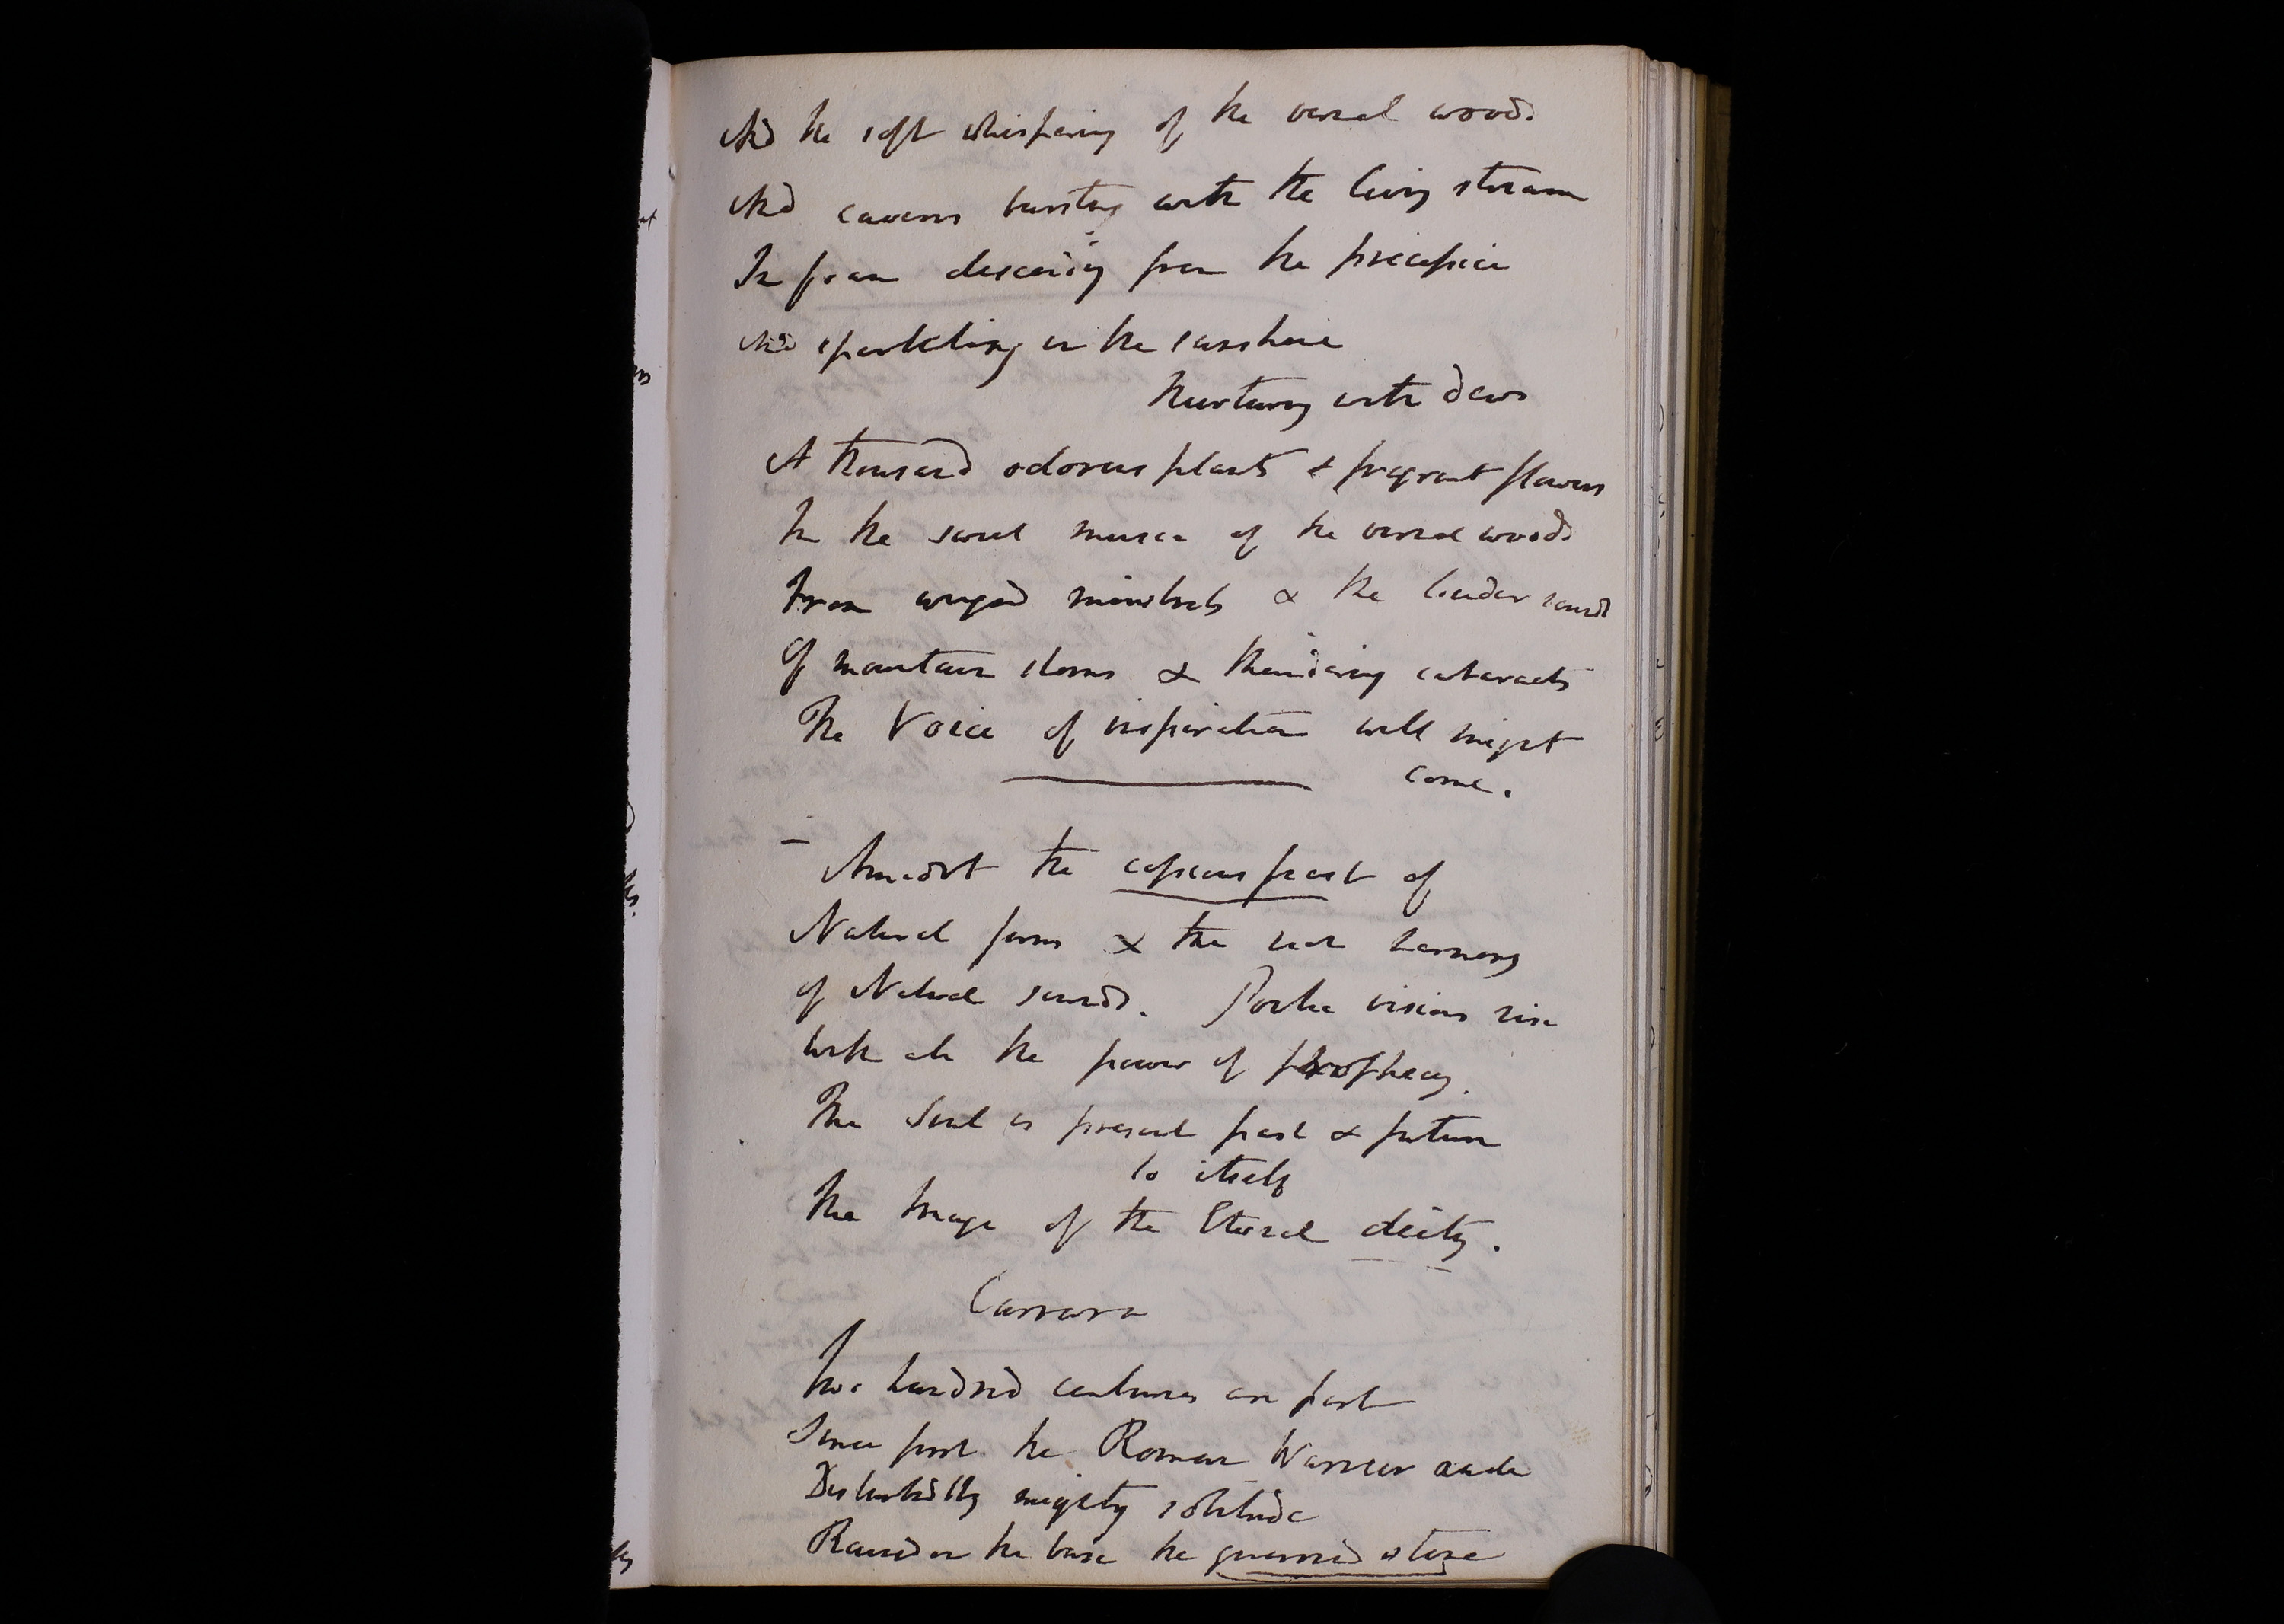 And the soft whispering of the vernal woods
And caverns bursting with the living stream
In foam descending from the precipice
And sparkling in the sunshine
Nurturing with dews
A thousand odorous plants & fragrant flowers
In the sweet music of the vernal woods
From winged minstrels & the louder sound
Of mountain storms & thundering cataracts
The Voice of inspiration well might
come.
- Amidst the copious feast of
Natural forms & the rich harmony
of Natural sounds. Poetic visions rise
With all the power of prophecy.
The Soul is present past & future
to itself
The Image of the Eternal deity.
Carrara
Two hundred centuries are past
Since first the Roman Warrior rude
Disturbed thy mighty solitude
Raised on the base the quarried stone